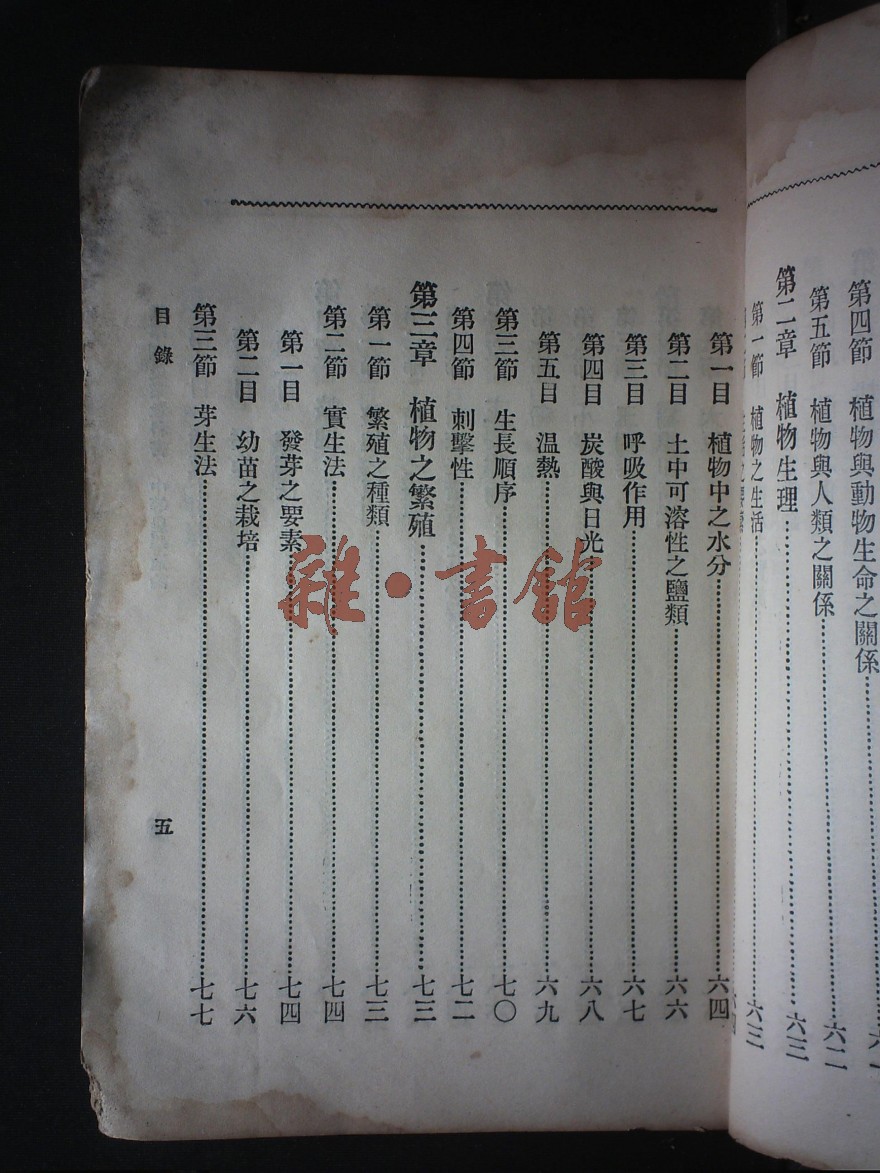 第四節　植物與動物生命之關係………六一
第五節　植物與人類之關係………六二
第二章　植物生理………六三
第一節　植物之生活………六三
第一目　植物中之水分………六四
第二目　土中可溶性之鹽類………六六
第三目　呼吸作用………六七
第四目　炭酸與日光………六八
第五目　温熱………六九
第三節　生長順序………七〇
第四節　刺擊性………七二
第三章　植物之繁殖………七三
第一節　繁殖之種類………七三
第二節　實生法………七四
第一目　發芽之要素………七四
第二目　幼苗之栽培………七六
第三節　芽生法………七七
目錄
五
雜·書館